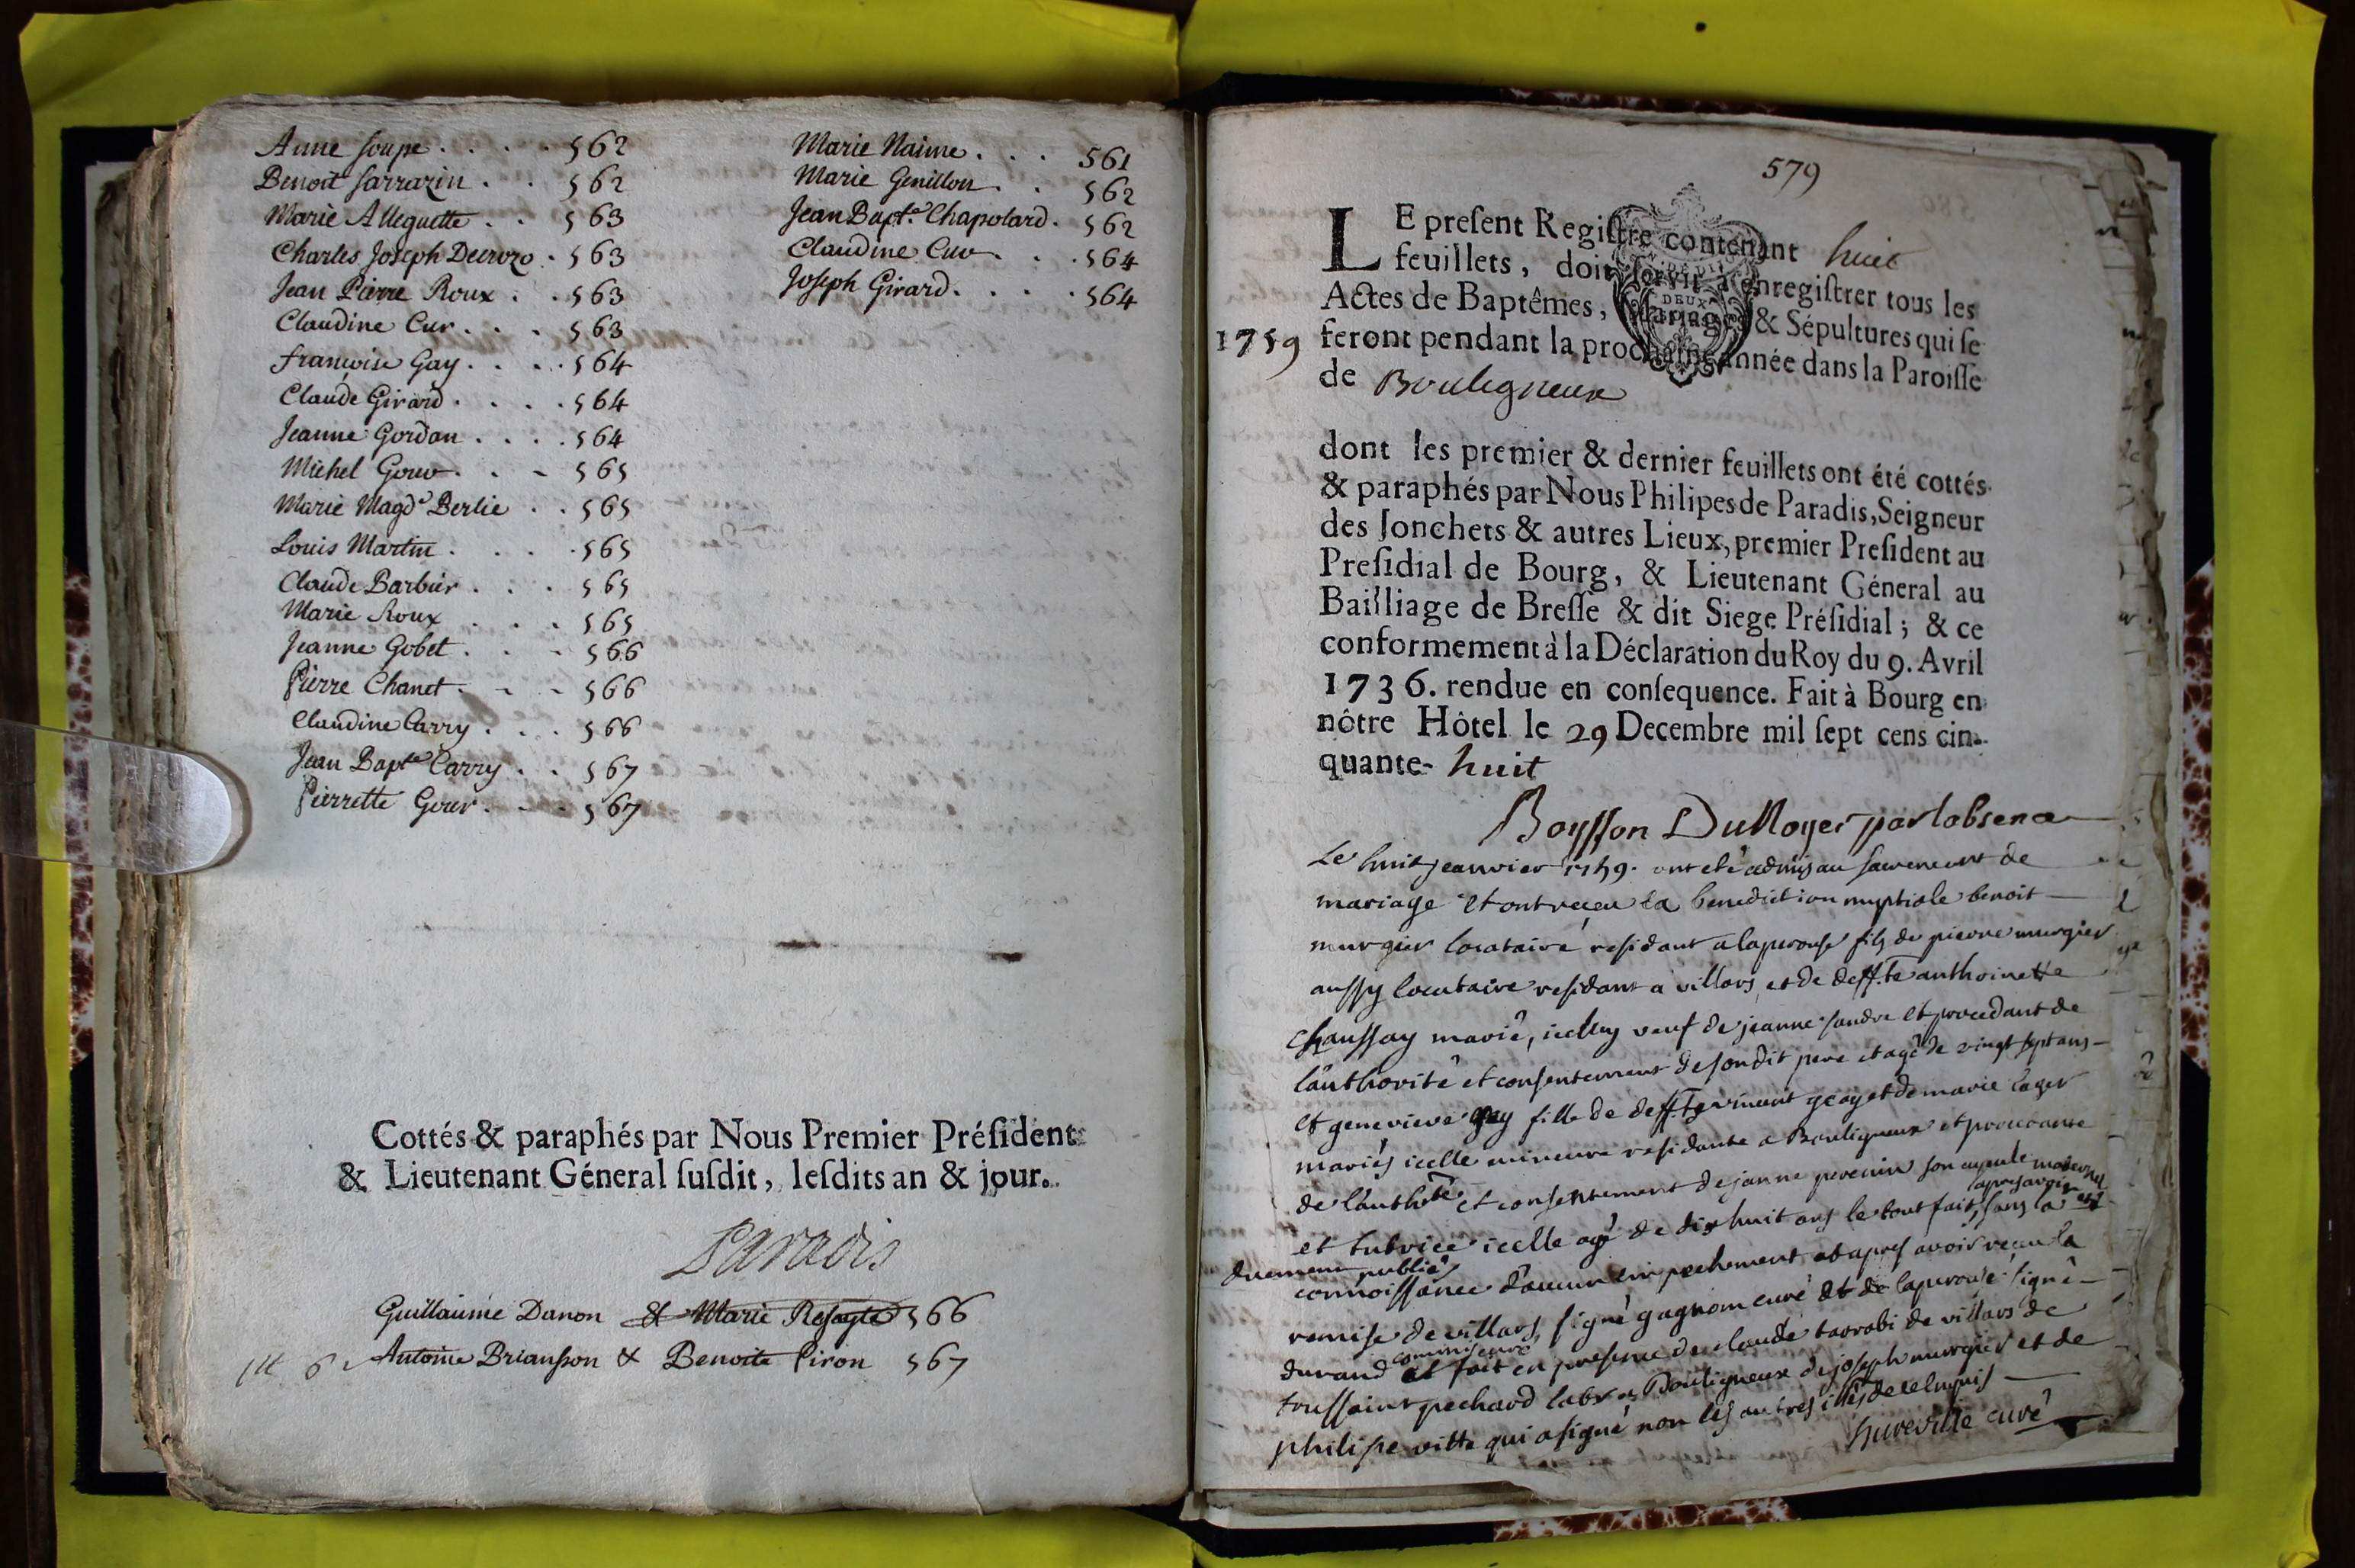 Anne soupe . . . . 562
Benoit sarrazin . . 562
Marie Alleguette . . 563
Charles Joseph Decrozo . 563
Jean Pierre Roux . . 563
Claudine Cur . . . 563
françoise Gay . . . . 564
Claude Girard . . . . 564
Jeanne Gordan . . . . 564
Michel Gouv . . - 565
Marie Magd.e Berlie . . 565
Louis Martin . . . . 565
Claude Barbier . . . 565
Marie Roux . . . 565
Jeanne Gobet . . - 566
Pierre Chanet . - - 566
Claudine Carry . . . 566
Jean Bapt.e Carry . . 567
Pierrette Gour . - - 567
Marie Naime . . . 561
Marie Genillon . . 562
Jean Bapt.e Chapolard . 562
Claudine Cuv . . . 564
Joseph Girard . . . . 564
Cottés & paraphés par Nous Premier Préſident
& Lieutenant Géneral ſuſdit, leſdits an & jour.
Paradis
Guillaume Danon & Marie 566
Antoine Briansson & Benoite Piron 567
579
LE preſent Regiſtre contenant huit
feuillets, doit ſervir à enregiſtrer tous les
Actes de Baptêmes, Mariages & Sépultures qui ſe
1759 feront pendant la prochaine année dans la Paroiſſe
de Bouligneux
dont les premier & dernier feuillets ont été cottés
& paraphés par Nous Philipes de Paradis, Seigneur
des Jonchets & autres Lieux, premier Preſident au
Preſidial de Bourg, & Lieutenant Géneral au
Bailliage de Breſſe & dit Siege Préſidial; & ce
conformement à la Déclaration du Roy du 9. Avril
1736. rendue en conſequence. Fait à Bourg en
nôtre Hôtel le 29 Decembre mil ſept cens cin-
quante- huit
Boysson DuNoyer par labsence
Le huit jeanvier 1759. ont eté admis au sacrement de
mariage et ont receu la benediction nuptiale benoit
murgier locataire residant a laperouse fils de pierre murgier
aussy locataire residant a villars et de deff.te anthoinette
chaussay mariè, icelluy veuf de jeanne sandre et procedant de
lauthorité et consentement de son dit pere et agé de vingt sept ans
et genevieve gay fille de deff.t vincent geay et de marie lager
mariés icelle mineure residante a Bouligneux et procedante
de l'auth.té et consentement de janne perenin son ayeule maternel
et tutrice icelle agé de dix huit ans le tout fait, apres avoir esté
duement publiés sans la
connoissance d'aucun empechement et apres avoir receu la
remise de villars, signé gagnom curé et de laperouse signé
durand commis curé et fait en presence de claude tarrabi de villars de
toussaint pechard lab.r a Bouligneux de joseph murgier et de
philipe vitte qui a signé non les autres illés de ce enquis
hureville curé